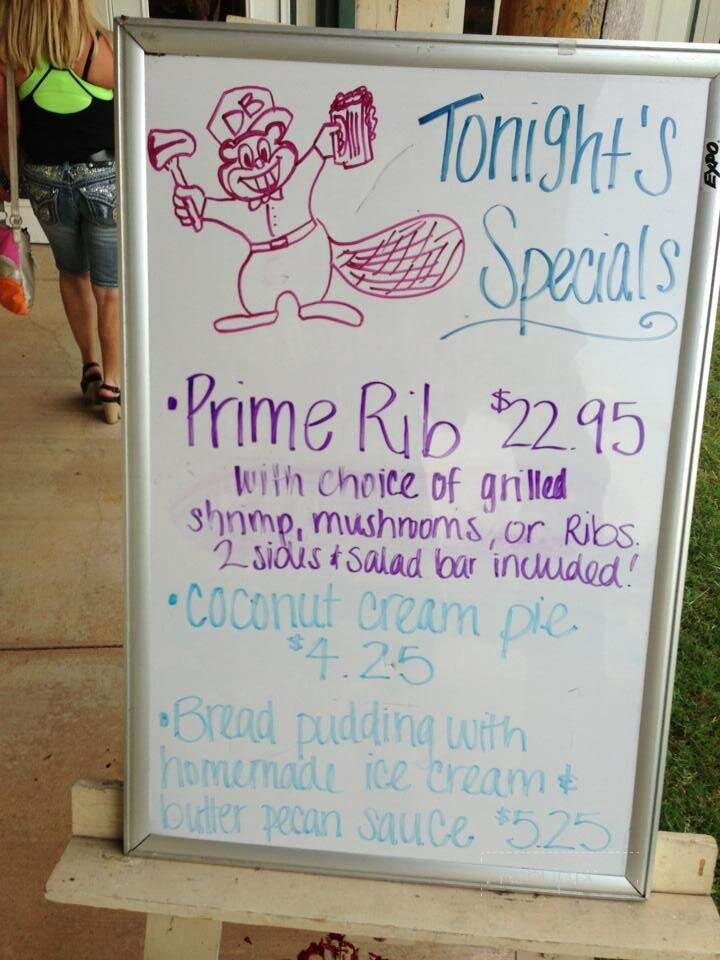 DB
Tonight's
Specials
EXPO
• Prime Rib $22.95
with choice of grilled
shrimp, mushrooms, or Ribs.
2 sides & salad bar included!
• coconut cream pie
$4.25
• Bread pudding with
homemade ice cream &
butter pecan sauce $5.25